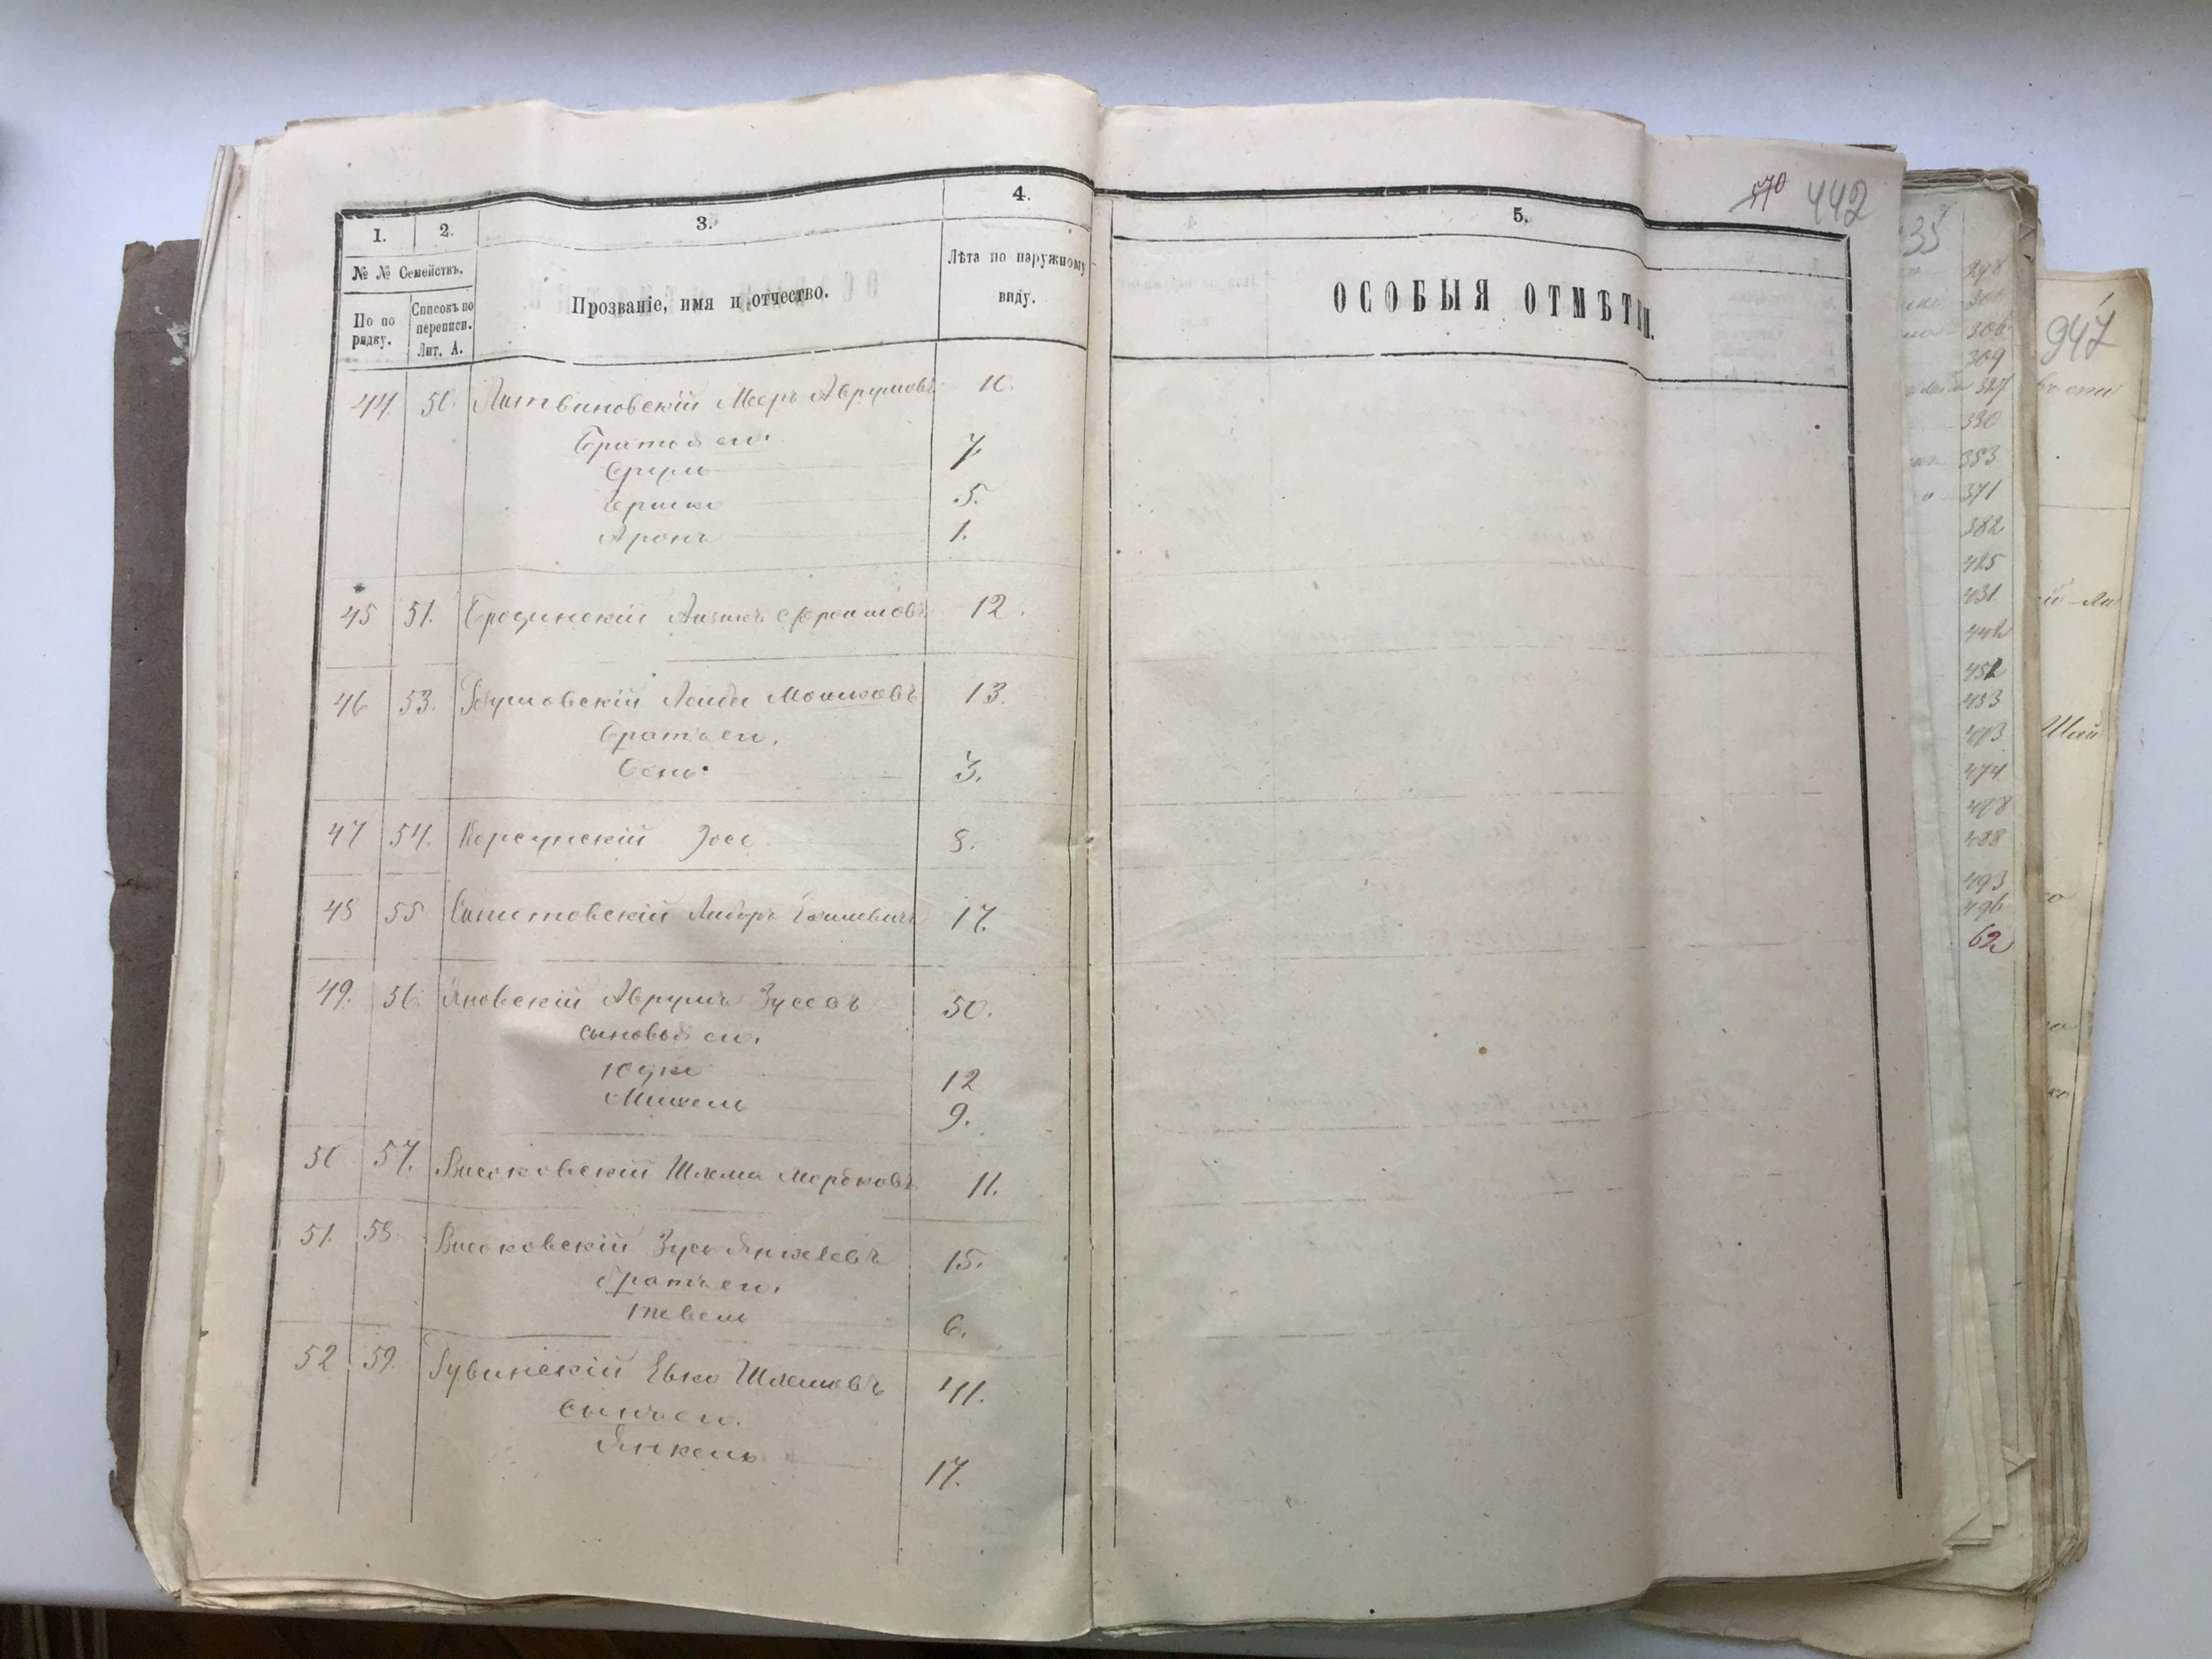 1. 2. 3. 4.
№ № Семействъ.
По по рядку.
Списокъ по переписи. Лит. А.
Прозваніе, имя и отчество.
Лѣта по наружному виду.
44. 50. Литвиновскій Меер Аврумовъ
Братья его:
Сруль 7
Гершко 5.
Аронъ 1.
45 51. Бродинскій Айзикъ 12.
46 53. Лейба Мошковъ 13.
Братъ его.
Бень 3.
47 54. Корсунскій Іосе 8.
48 55 17.
49. 56. Яновскій Аврумъ Зусевъ 50.
сыновья его.
Юдке 12
Михель 9.
50 57. Високовскій Шлема Мордковъ 11.
51. 58 Високовскій Зусь Янкелевъ 15.
братъ его.
Тевель 6.
52 59. Губинскій Евко Шлемовъ 41.
Сынъ его.
Янкель 17.
5.
ОСОБЫЯ ОТМѢТКИ.
442
35
298
306
309
327
330
353
371
382
425
431
442
452
453
473
474
478
488
493
496
62
947
Шай